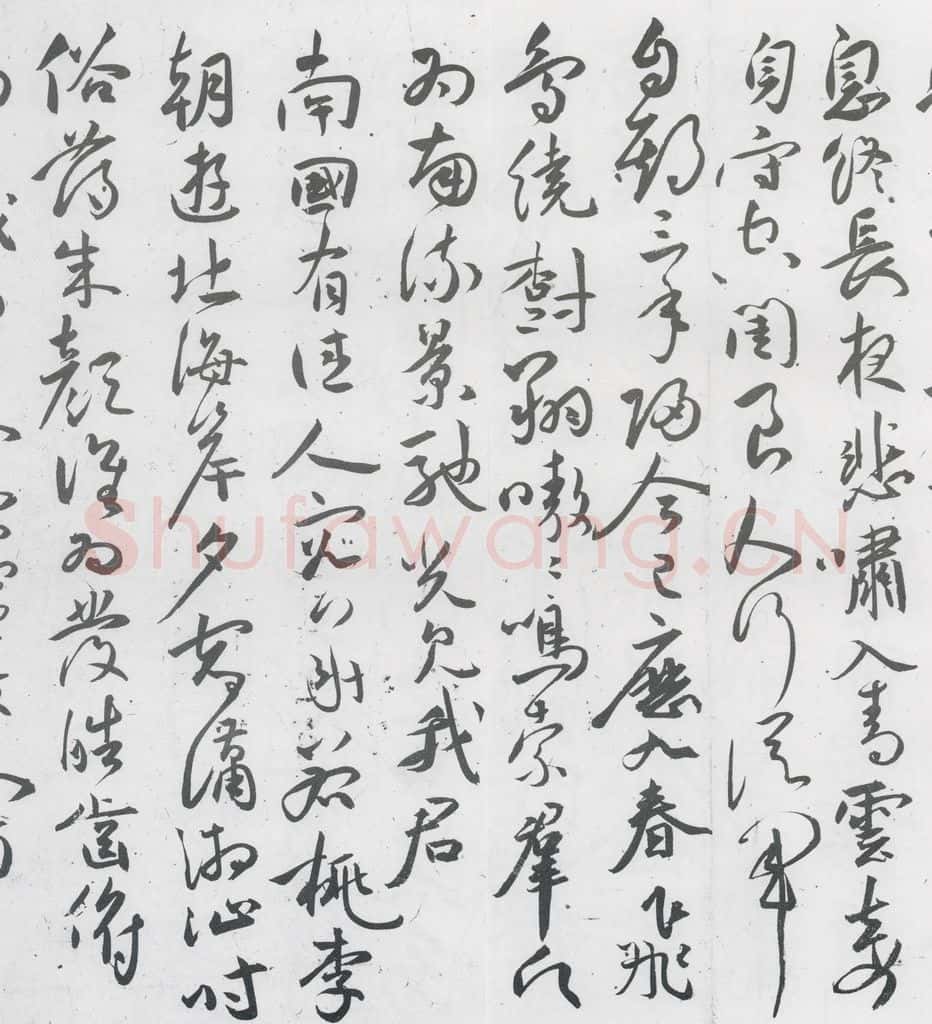 息終長夜悲嘯入青雲妾
身守空閨良人行從軍
自期三年歸今已歷九春飛
鳥繞樹翔噭々鳴索群願
為南流景馳光見我君
南國有佳人容華若桃李
朝遊北海岸夕宿瀟湘沚時
俗薄朱顏誰為發皓齒俯
Shufawang.CN